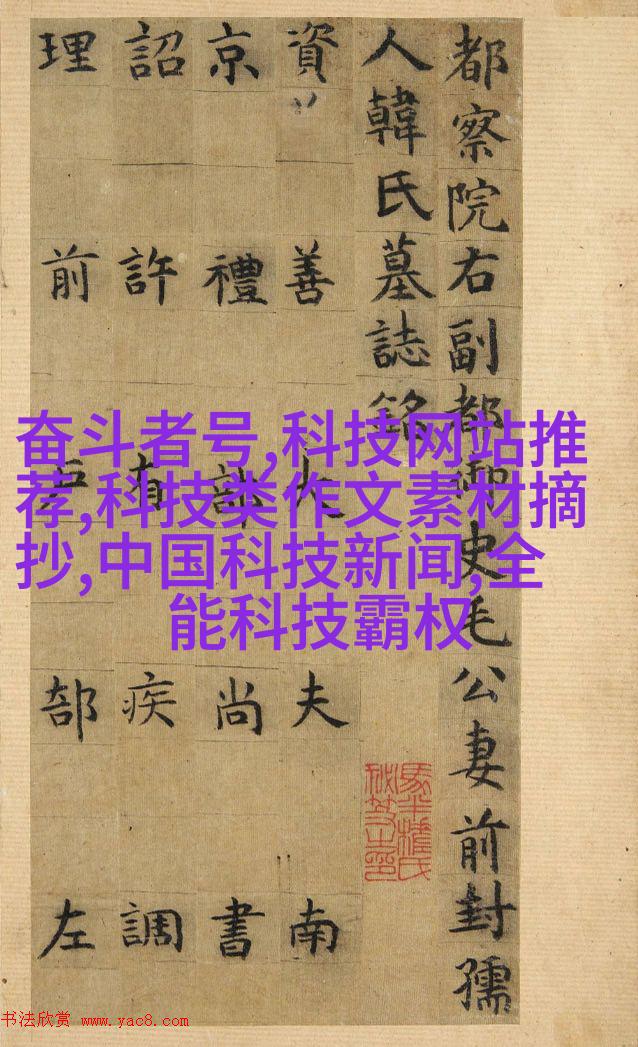 都察院右副都御史毛公妻前封孺
人韓氏墓誌銘
資善大夫南
京禮部尚書
詔許有疾調
理前戶部左
奋斗者号,科技网站推
荐,科技类作文素材摘
抄,中国科技新闻,全
能科技霸权
书法欣赏 www.yac8.com